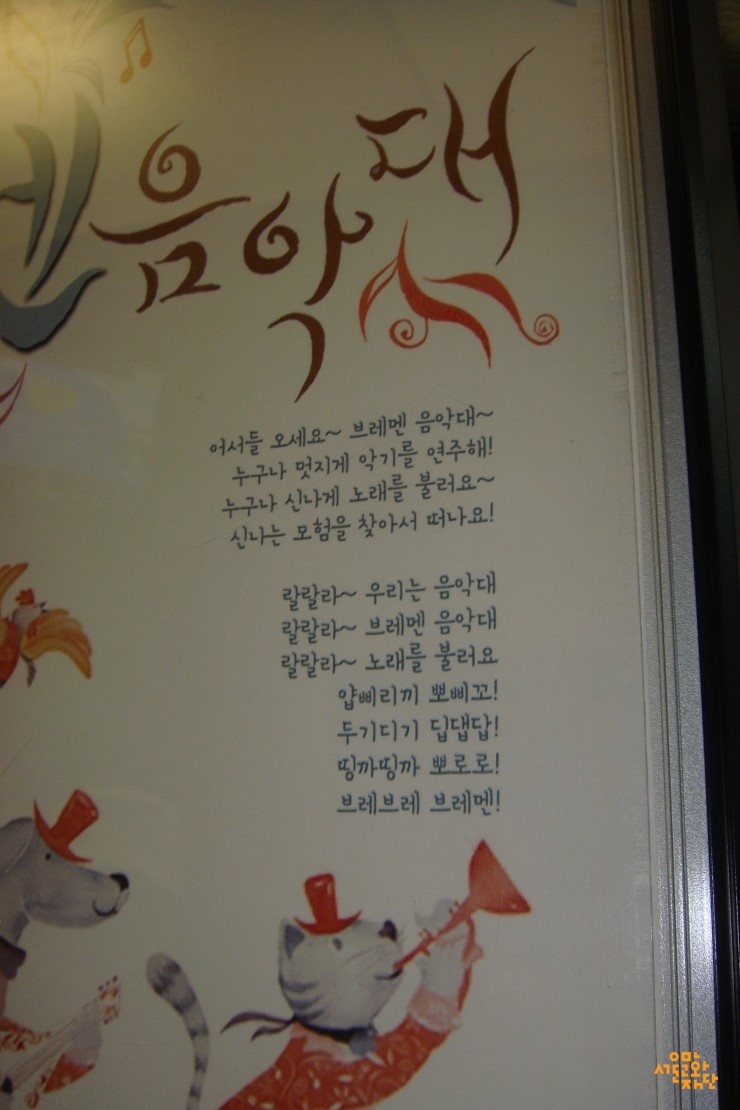 멘음악대
어서들 오세요~ 브레멘 음악대~
누구나 멋지게 악기를 연주해!
누구나 신나게 노래를 불러요~
신나는 모험을 찾아서 떠나요!
랄랄라~ 우리는 음악대
랄랄라~ 브레멘 음악대
랄랄라~ 노래를 불러요
얍삐리끼 뽀삐꼬!
두기디기 딥댑답!
띵까띵까 뽀로로!
브레브레 브레멘!